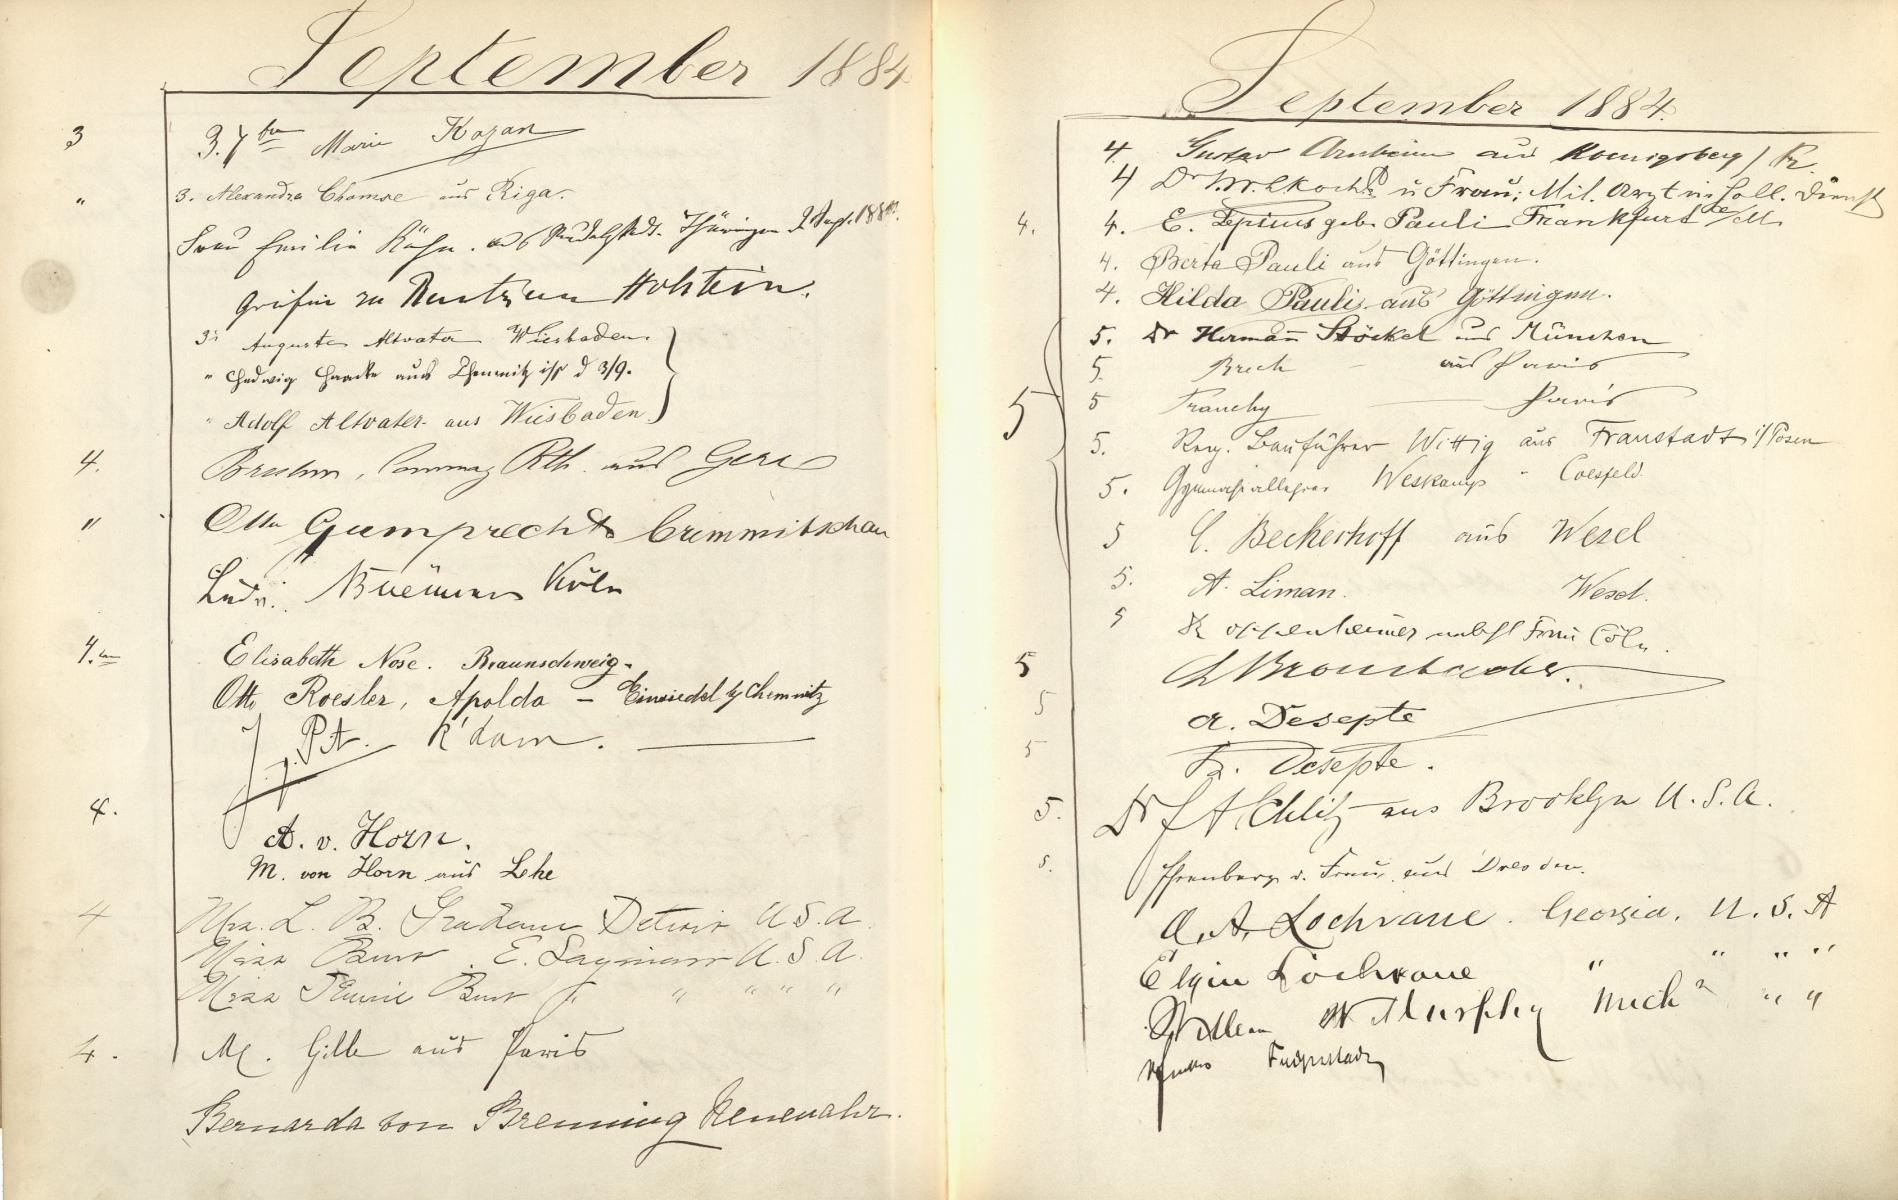 September 1884
3 3. 7br Marie Kazan
" 3. Alexandra Chomse aus Riga.
Frau Emilie Kühn. aus Rudolstadt. Thüringen 3 Sept. 1884.
Gräfin zu Rantzau Holstein.
3. Auguste Altvater Wiesbaden.
" Hedwig Haacke aus Chemnitz i/S d 3/9.
" Adolf Altvater aus Wiesbaden.
4. Bruhm, Commerz Rth. aus Gera
" Otto Gumprecht Crimmitschau
Köln
4. Elisabeth Nose. Braunschweig.
Otto Roesler, Apolda – Einsiedel b/ Chemnitz
R'dam.
4. A. v. Horn.
M. von Horn aus Lehe
4 Mrs. L. B. Detroit U.S.A.
Miss Burt. E. Saginaw U.S.A.
Miss Burt " " " " "
4. M. Gille aus Paris
Bernarda von Brenning Neuenahr.
September 1884.
4. Gustav Arnheim aus Koenigsberg / Pr.
4 Dr u Frau; Mil. Arzt in holl. Dienst
4. 4. E. Lepsius geb. Pauli Frankfurt a/M
4. Berta Pauli aus Göttingen.
4. Hilda Pauli aus Göttingen.
5. Dr Hermann Stöckel aus München
5. Brech aus Paris
5 5 Franchy Paris
5. Reg. Bauführer Wittig aus Fraustadt i/Posen
5. Gymnasiallehrer Weskamp " Coesfeld.
5 C. Beckerhoff aus Wesel
5. A. Liman. Wesel.
5 Oppenheimer nebst Frau Cöln.
5
5 A. Desepte
5 Fr. Desepte.
5. Dr aus Brooklyn U.S.A.
5. Ehrenberg u. Frau aus Dresden.
O. A. Lochrane. Georgia. U.S.A
Elgin Lochrane " " " "
William W Murphy Mich " " "